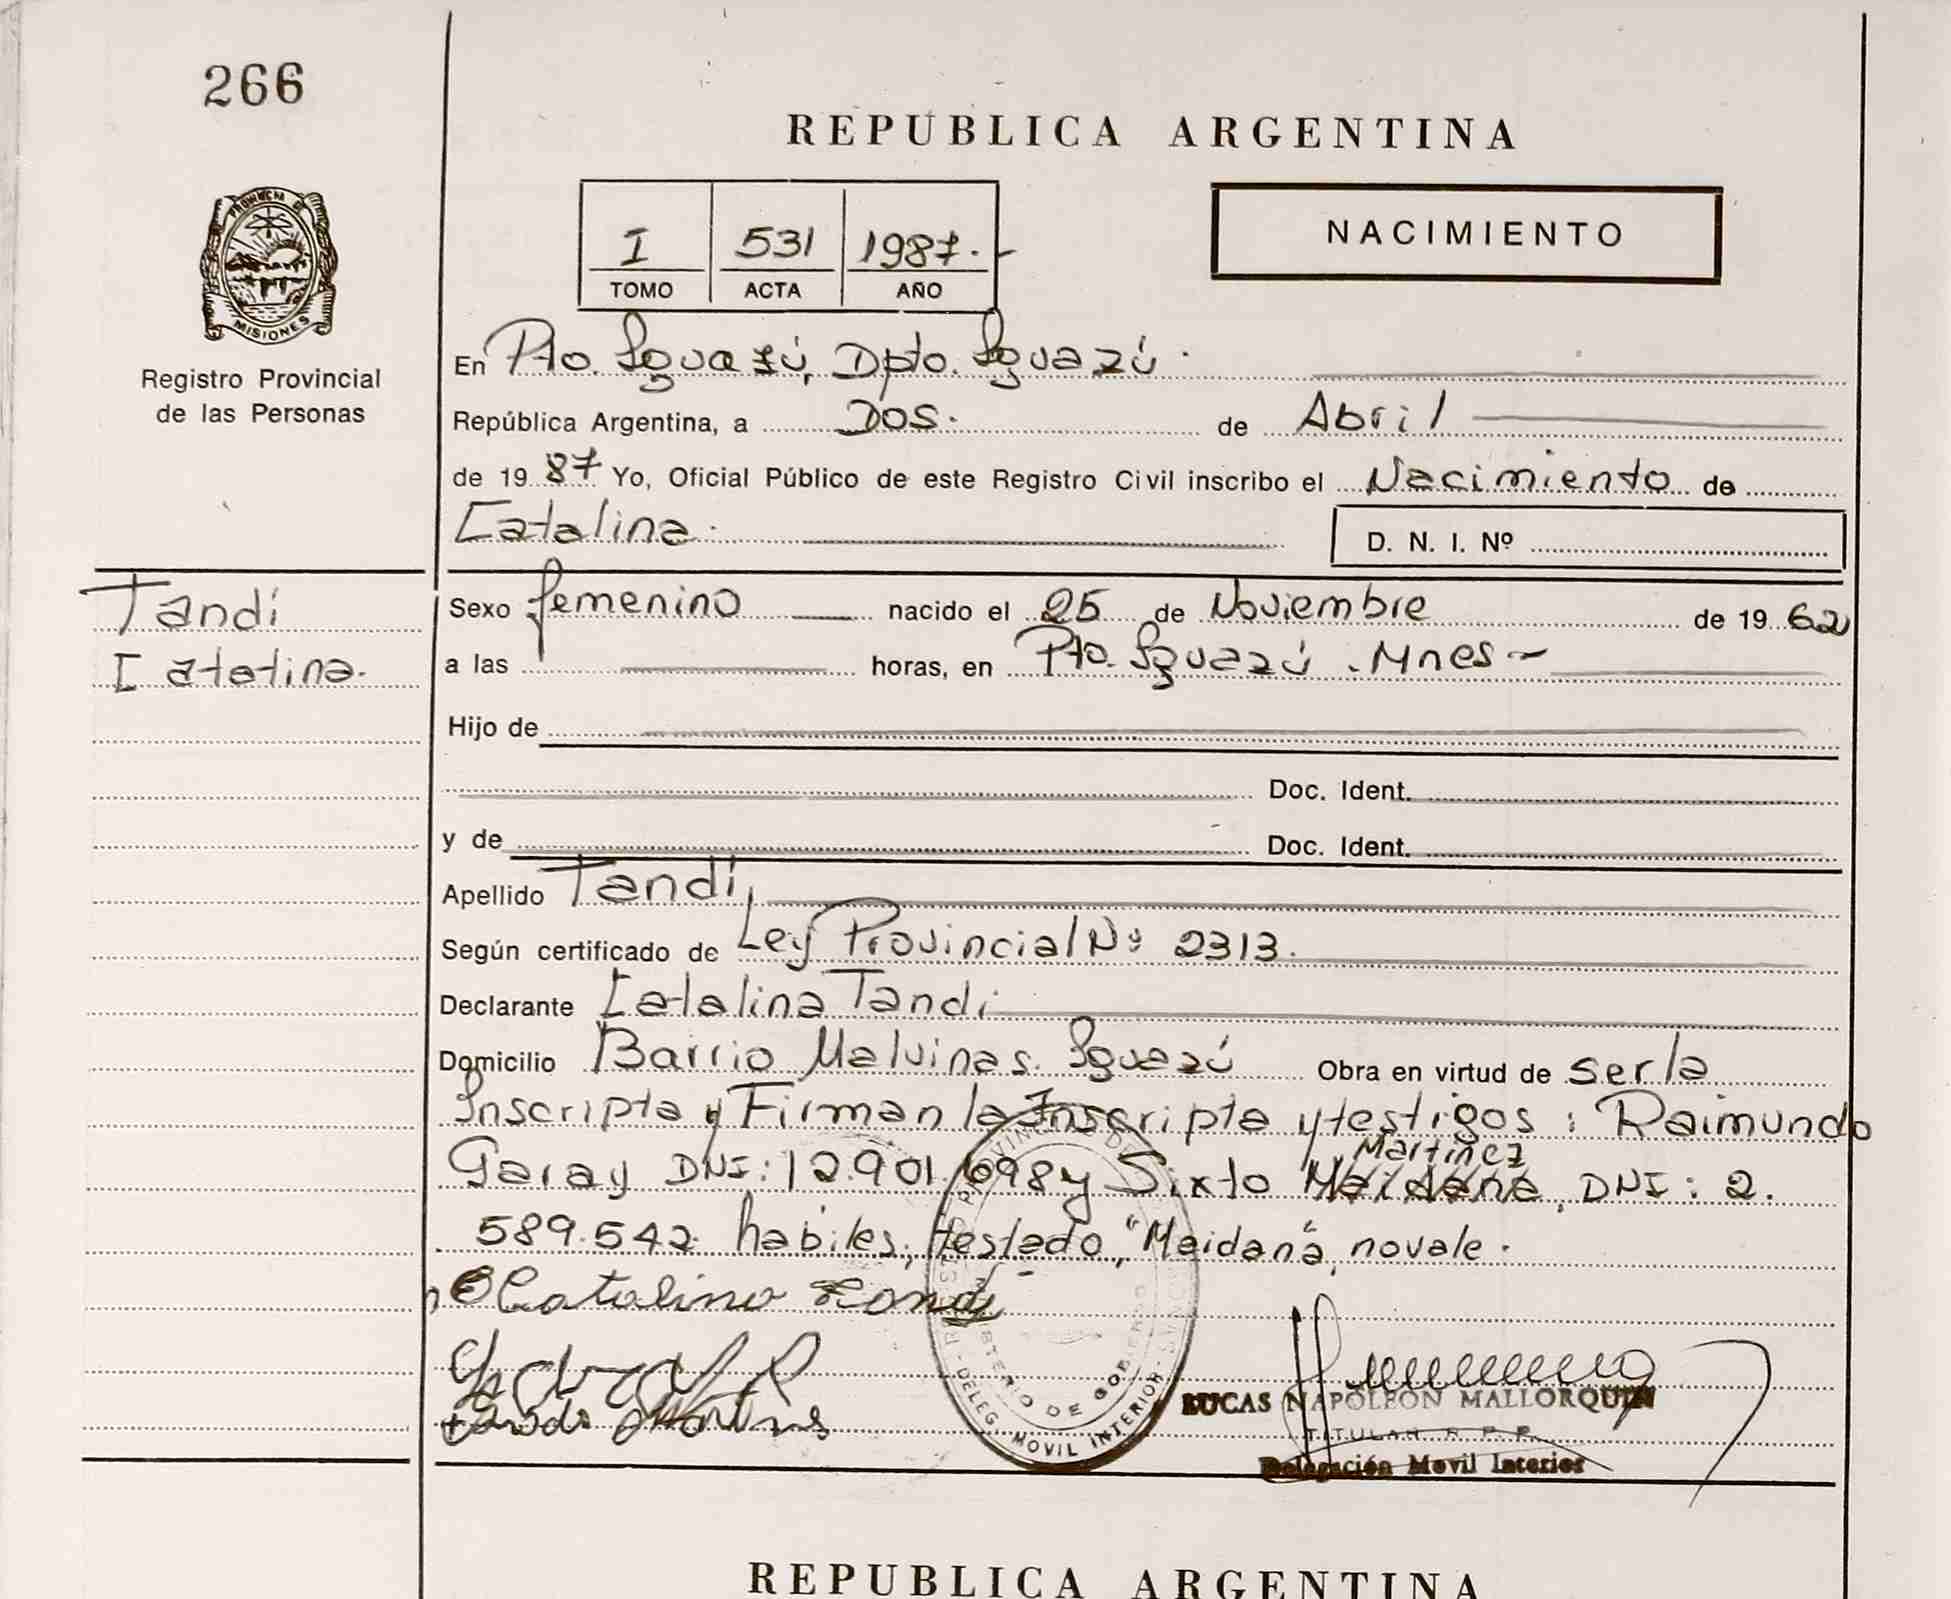 266
REPUBLICA ARGENTINA
PROVINCIA DE
MISIONES
Registro Provincial
de las Personas
I 531 1987.-
TOMO ACTA AÑO
NACIMIENTO
En Pto. Iguazú, Dpto. Iguazú.
República Argentina, a Dos. de Abril
de 1987 Yo, Oficial Público de este Registro Civil inscribo el Nacimiento de
Catalina.
D. N. I. Nº
Tandi
Catalina.
Sexo femenino nacido el 25 de Noviembre de 1962
a las horas, en Pto. Iguazú. Mnes
Hijo de
Doc. Ident.
y de Doc. Ident.
Apellido Tandi,
Según certificado de Ley Provincial Nº 2313.
Declarante Catalina Tandi
Domicilio Barrio Malvinas. Iguazú Obra en virtud de ser la
Inscripta y Firman la Inscripta y testigos: Raimundo
Martinez
Garay DNI: 12.901.698 y Sixto Maidana, DNI: 2.
589.542 habiles, testado, "Maidana", no vale.
Catalina Tandi
MINISTERIO DE GOBIERNO
DELEG. MOVIL INTERIOR
LUCAS NAPOLEON MALLORQUIN
TITULAR R P P
Delegación Movil Interior
REPUBLICA ARGENTINA